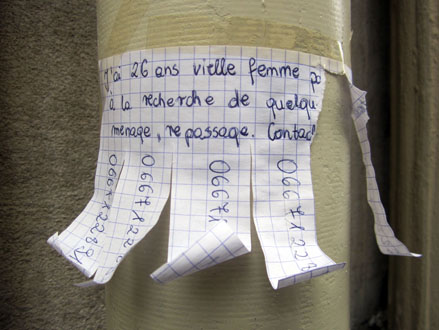 J'ai 26 ans vielle femme po
à la recherche de quelqu
ménage, repassage. Contac
0667122
0667122
06671
0667122